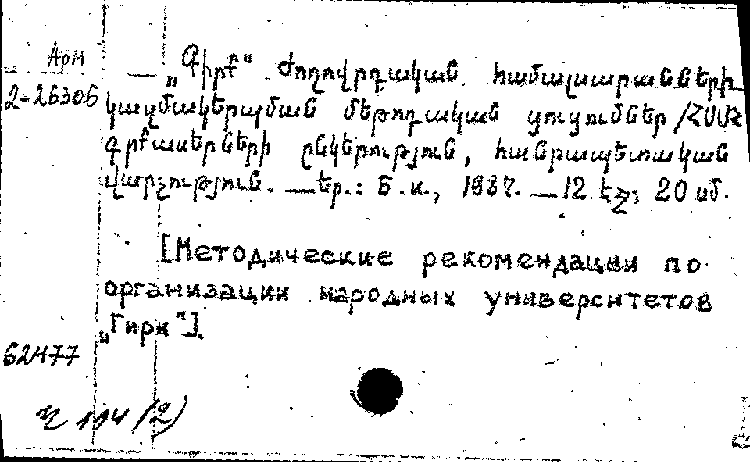 Арм
2-26306
— „Գիրք“ ժողովրդական համալսարանների
կազմակերպման մեթոդական ցուցումներ /ՀՍՍՀ
գրքասերների ընկերություն, հանրապետական
վարչություն. — Եր.: Б. и., 1987. — 12 էջ; 20 սմ.
[Методические рекомендации по
организации народных университетов
„Гирк“].
62477
104 (2)